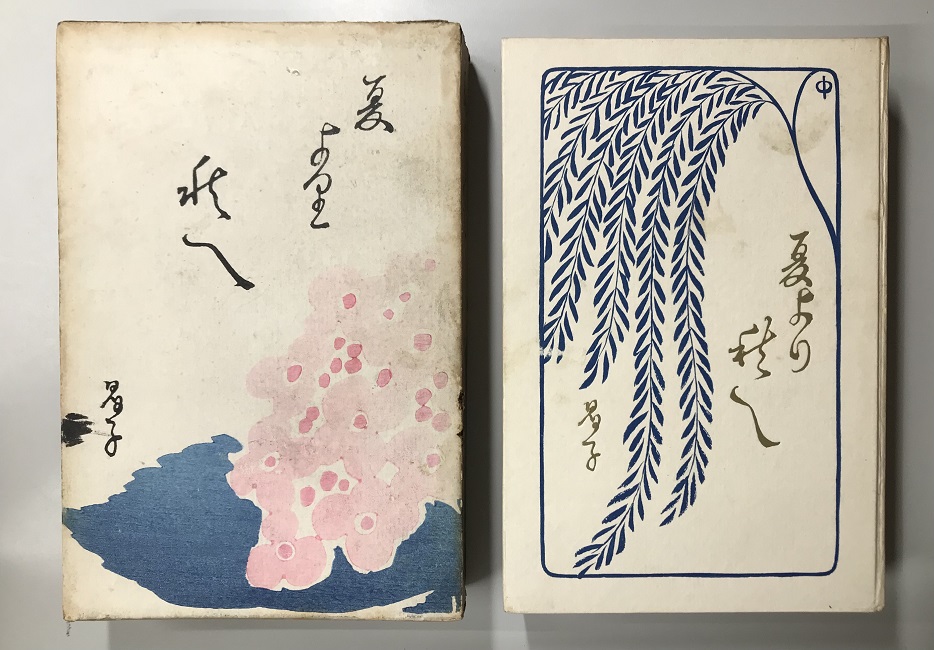 夏よ里
秋へ
晶子
中
夏より
秋へ
晶子